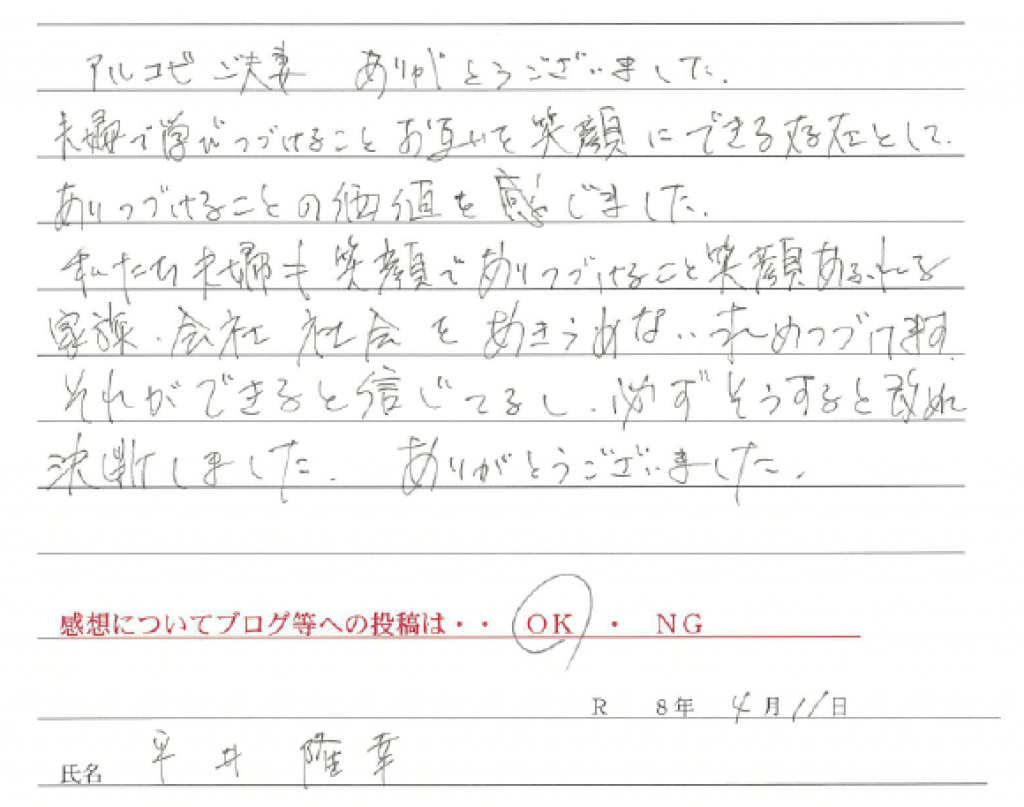 アルコゼご夫妻 ありがとうございました.
夫婦で学びつづけること お互いを笑顔にできる存在として.
ありつづけることの価値を感じました.
私たち夫婦も笑顔でありつづけること笑顔あふれる
家族.会社 社会をあきらめない.求めつづけます.
それができると信じてるし.必ずそうすると改めて
決断しました. ありがとうございました.
感想についてブログ等への投稿は・・ OK ・ NG
R 8年 4月11日
氏名 平井 隆幸